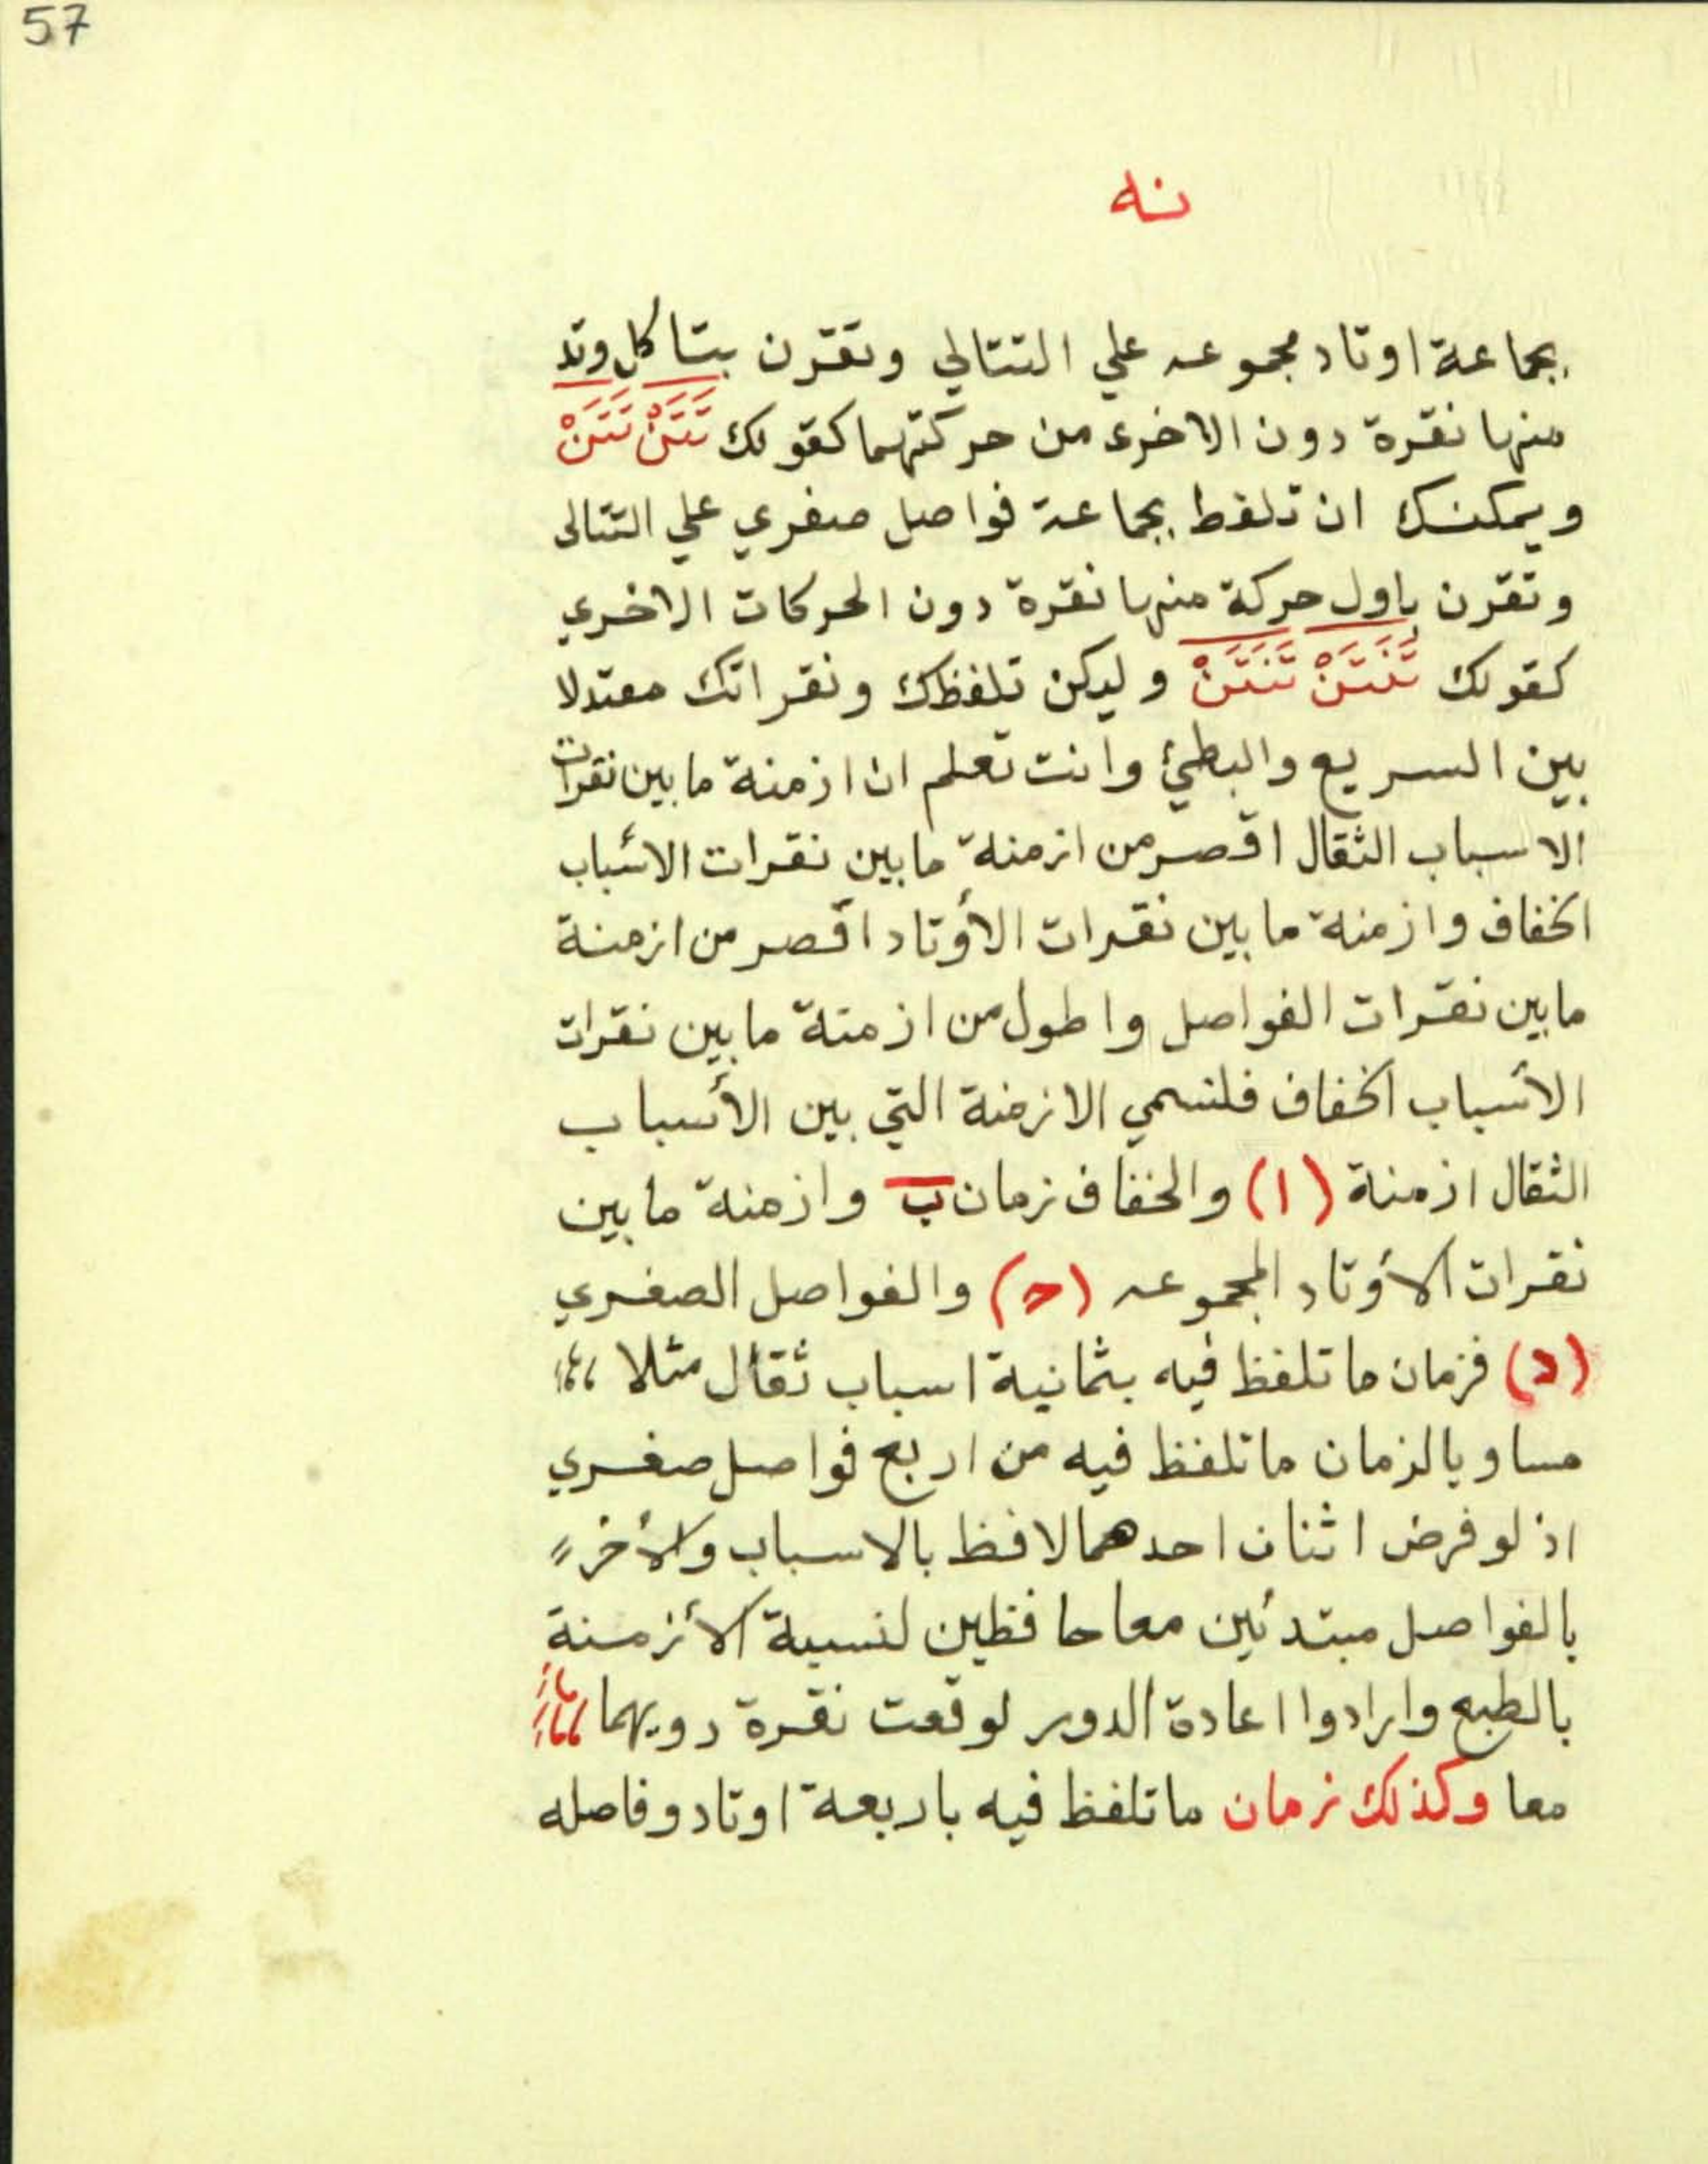 57
نه
بجماعة اوتاد مجموعه علي التتالي وتقرن بتا كل وتد
منها نقرة دون الاخرى من حركتهما كقولك تَتَنْ تَتَنْ
ويمكنك ان تلفظ بجماعة فواصل صغري علي التتالى
وتقرن باول حركة منها نقرة دون الحركات الاخري
كقولك تَنَتَنْ تَنَتَنْ وليكن تلفظك ونقراتك معتدلا
بين السريع والبطئ وانت تعلم ان ازمنة ما بين نقرات
الاسباب الثقال اقصر من ازمنة ما بين نقرات الأسباب
الخفاف وازمنة ما بين نقرات الأوتاد اقصر من ازمنة
ما بين نقرات الفواصل واطول من ازمنة ما بين نقرات
الأسباب الخفاف فلنسمي الازمنة التي بين الأسباب
الثقال ازمنة (ا) والخفاف زمان ب وازمنة ما بين
نقرات الأوتاد المجموعه (ح) والفواصل الصغري
(د) فزمان ما تلفظ فيه بثمانية اسباب ثقال مثلا
مساو بالزمان ما تلفظ فيه من اربع فواصل صغري
اذ لو فرض اثنان احدهما لافظ بالاسباب والأخر
بالفواصل مبتدئين معا حافظين لنسبة الأزمنة
بالطبع وارادوا اعادة الدور لوقعت نقرة دويهما
معا وكذلك زمان ما تلفظ فيه باربعة اوتاد وفاصله